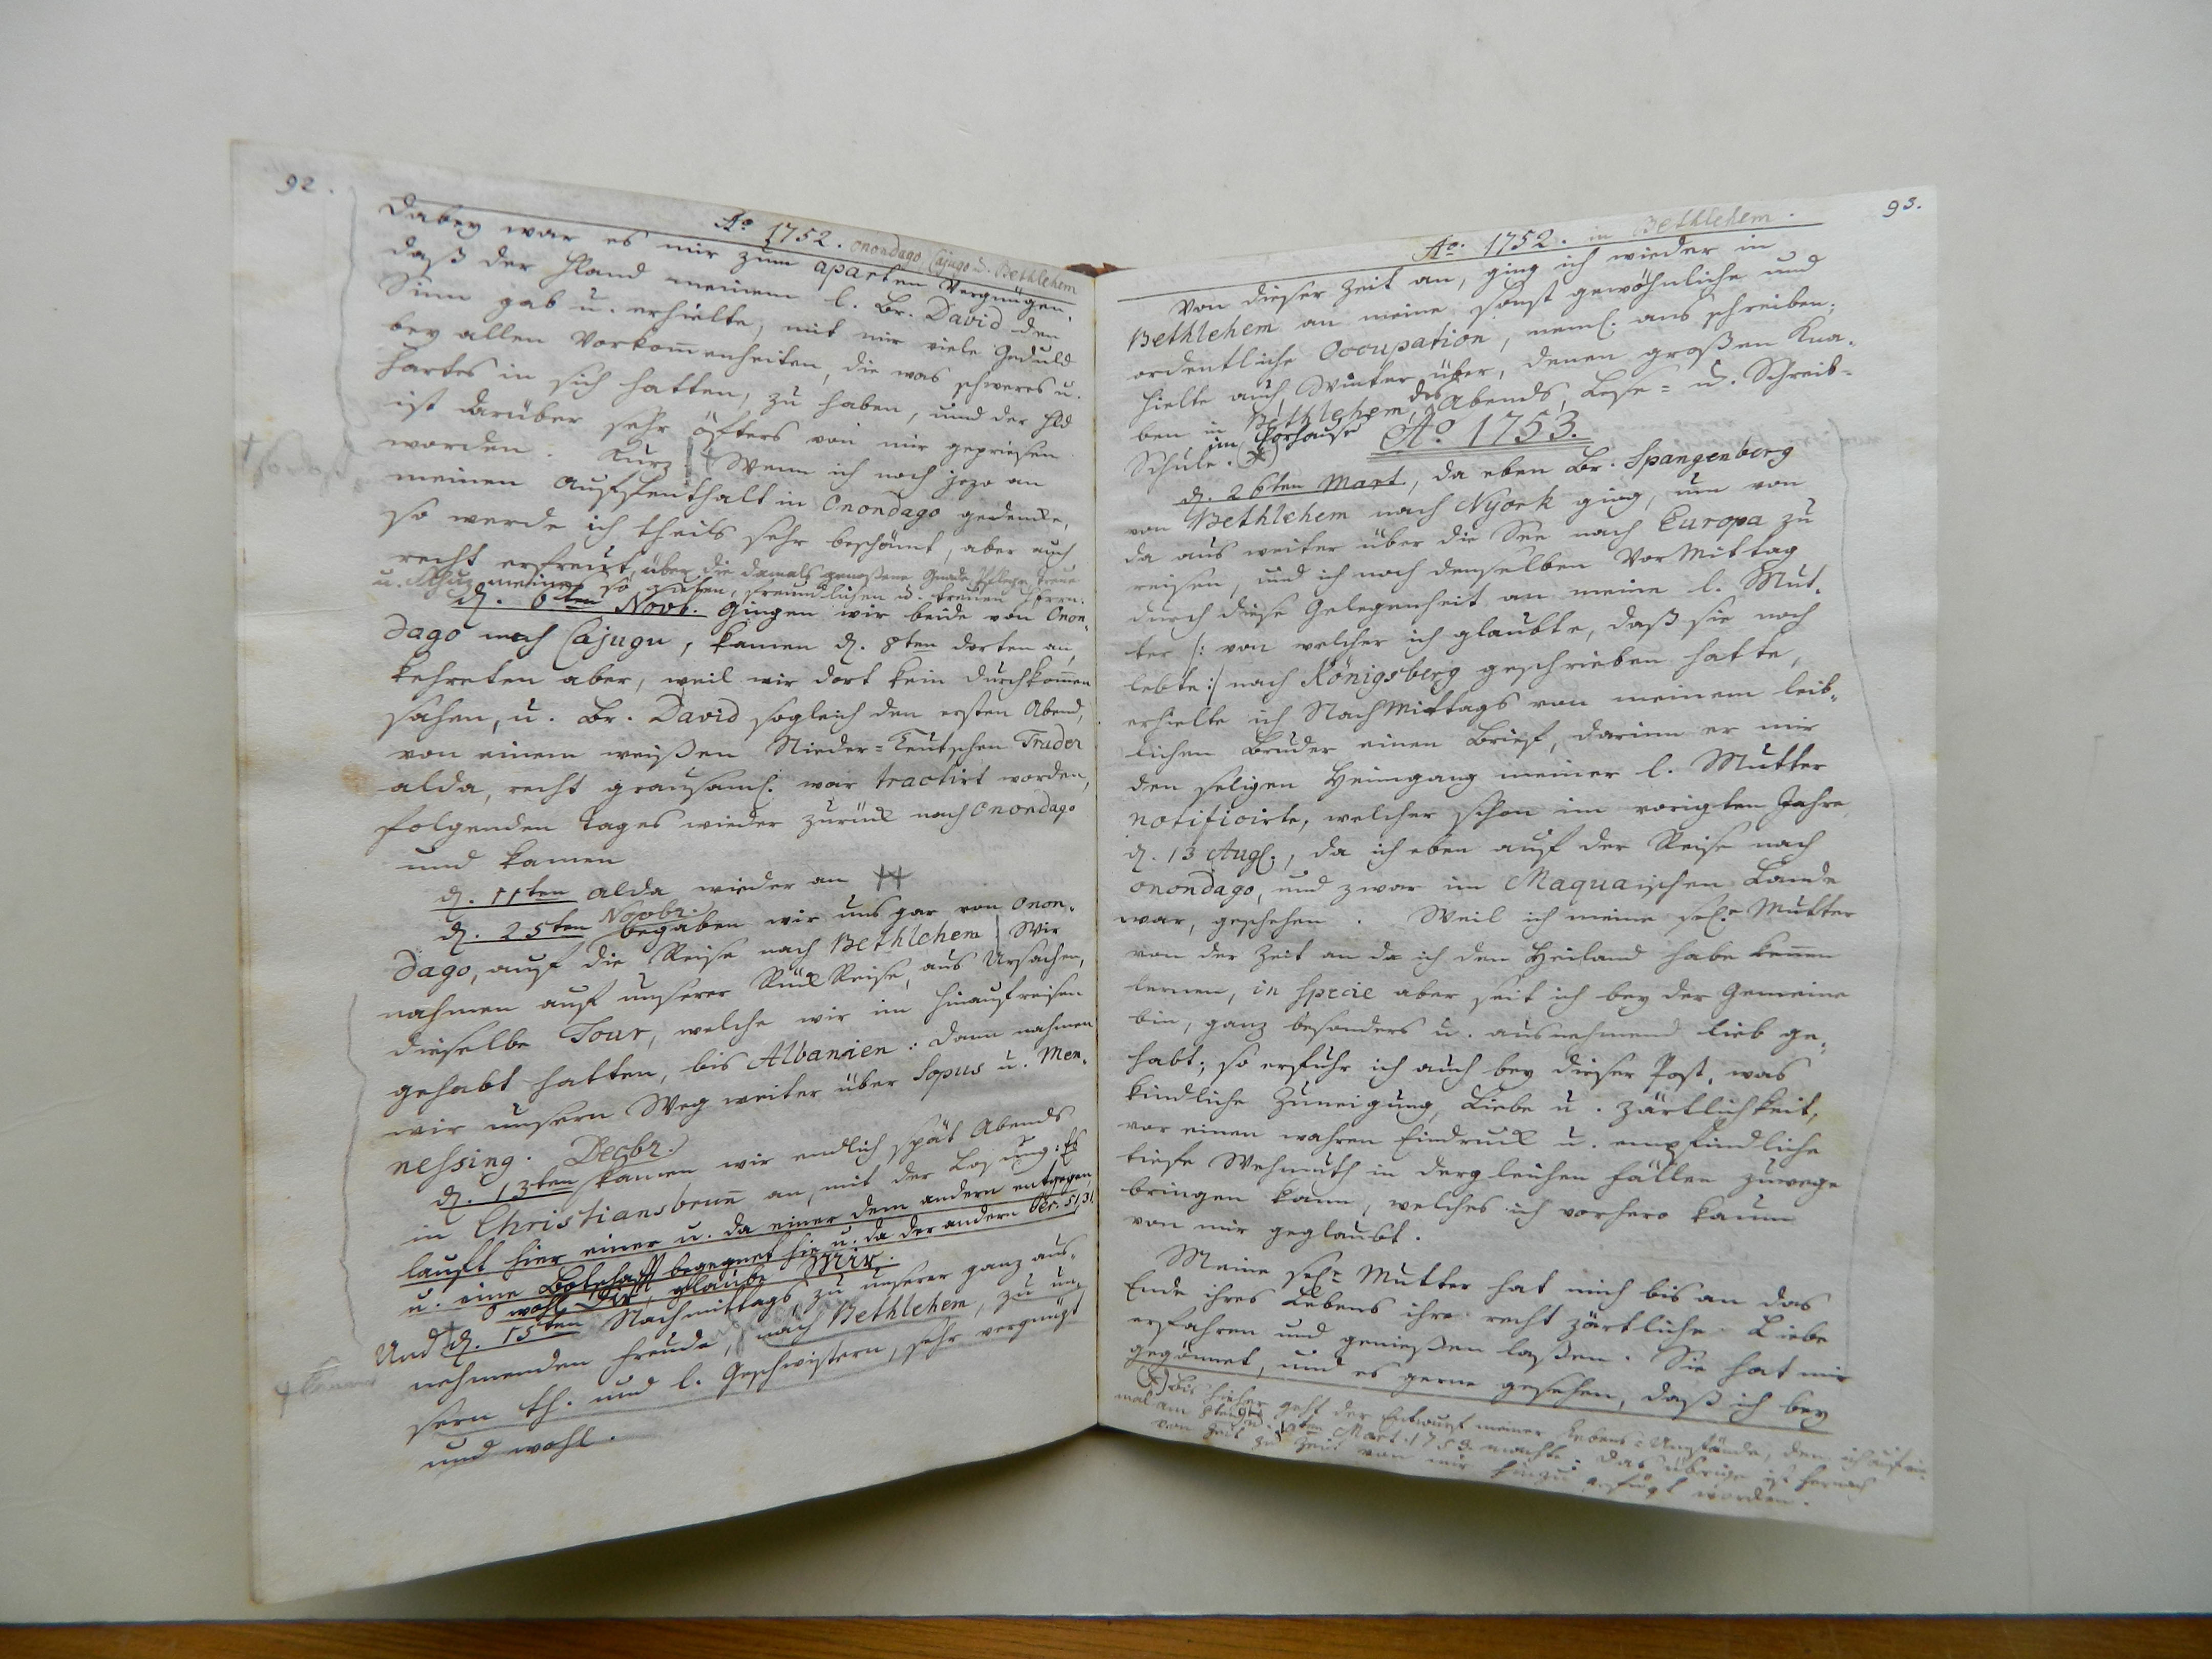 92.
Ao 1752. Onondago, Cajugu u. Bethlehem
Dabey war es mir zum aparten Vergnügen,
daß der Hland meinem l. Br. David den
Sinn gab u. erhielte, mit mir viele Geduld
bey allen Vorkom̅enheiten, die was schweres u.
hartes in sich hatten, zu haben, und der Hld
ist darüber sehr öfters von mir gepriesen
worden. Kurz Wenn ich noch jezo an
meinen Auffenthalt in Onondago gedenke,
so werde ich theils sehr beschämt, aber auch
recht erfreut, über die damals genoßene Gnade, Pflege, Treue
u. Schuz meines so guten, freundlichen u. treuen Herrn.
d. 6ten Novb. gingen wir beide von Onon-
dago nach Cajugu, kamen d. 8ten dorten an,
kehreten aber, weil wir dort kein Durchkom̅en
sahen, u. Br. David sogleich den ersten Abend,
von einem weißen Nieder-Teutschen Trader
alda, recht grausaml. war tractirt worden,
folgenden Tages wieder zurück nach Onondago
und kamen
d. 11ten alda wieder an
d. 25ten Novbr. begaben wir uns gar von Onon-
dago, auf die Reise nach Bethlehem Wir
nahmen auf unserer Rück Reise, aus Ursachen,
dieselbe Tour, welche wir im hinaufreisen
gehabt hatten, bis Albanien: dann nahmen
wir unsern Weg weiter über Sopus u. Men-
nessing. Decbr.
d. 13ten kamen wir endlich spät Abends
in Christiansbrun̅ an, mit der Losung: Es
lauft hier einer u. da einer dem andern entgegen,
u. eine Botschafft begegnet hie u. da der andern Jer. 51,31.
wohl Dir, glaube mir.
Und d. 15ten Nachmittags, zu unserer ganz aus-
nehmenden Freude, nach Bethlehem, zu un-
sern th. und l. Geschwistern, sehr vergnügt
und wohl.
93.
Ao. 1752. in Bethlehem.
Von dieser Zeit an, ging ich wieder in
Bethlehem an meine sonst gewöhnliche und
ordentliche Occupation, neml. ans schreiben;
hielte auch, Winter über, denen großen Kna-
ben in Bethlehem, des Abends, Lese- u. Schreib-
Schule. im Chorhause
Ao. 1753.
d. 26ten Mart., da eben Br. Spangenberg
von Bethlehem nach NYork ging, um von
da aus weiter über die See nach Europa zu
reisen, und ich noch denselben Vormittag
durch diese Gelegenheit an meine l. Mut-
ter /: von welcher ich glaubte, daß sie noch
lebte :/ nach Königsberg geschrieben hatte,
erhielte ich Nachmittags von meinem leib-
lichen Bruder einen Brief, darinn er mir
den seligen Heimgang meiner l. Mutter
notificirte, welcher schon im vorigten Jahre
d. 13 Augl., da ich eben auf der Reise nach
Onondago, und zwar im Maquaischen Lande
war, geschehen. Weil ich meine sel. Mutter
von der Zeit an da ich den Heiland habe ken̅en
lernen, in specie aber seit ich bey der Gemeine
bin, ganz besonders u. ausnehmend lieb ge-
habt; so erfuhr ich auch bey dieser Post, was
kindliche Zuneigung, Liebe u. Zärtlichkeit,
vor einen wahren Eindruck u. empfindliche
tiefe Wehmuth in dergleichen Fällen zuwege
bringen kann, welches ich vorhero kaum
von mir geglaubt.
Meine sel. Mutter hat mich bis an das
Ende ihres Lebens ihre recht zärtliche Liebe
erfahren und genießen laßen. Sie hat mir
gegönnet, und es gerne gesehen, daß ich bey
Bis hieher geht der Entwurf meiner Lebens-Umstände, den ich auf ein-
mal am Mart. 1753. machte; das übrige ist hernach
von Zeit zu Zeit von mir hinzu gefügt worden.